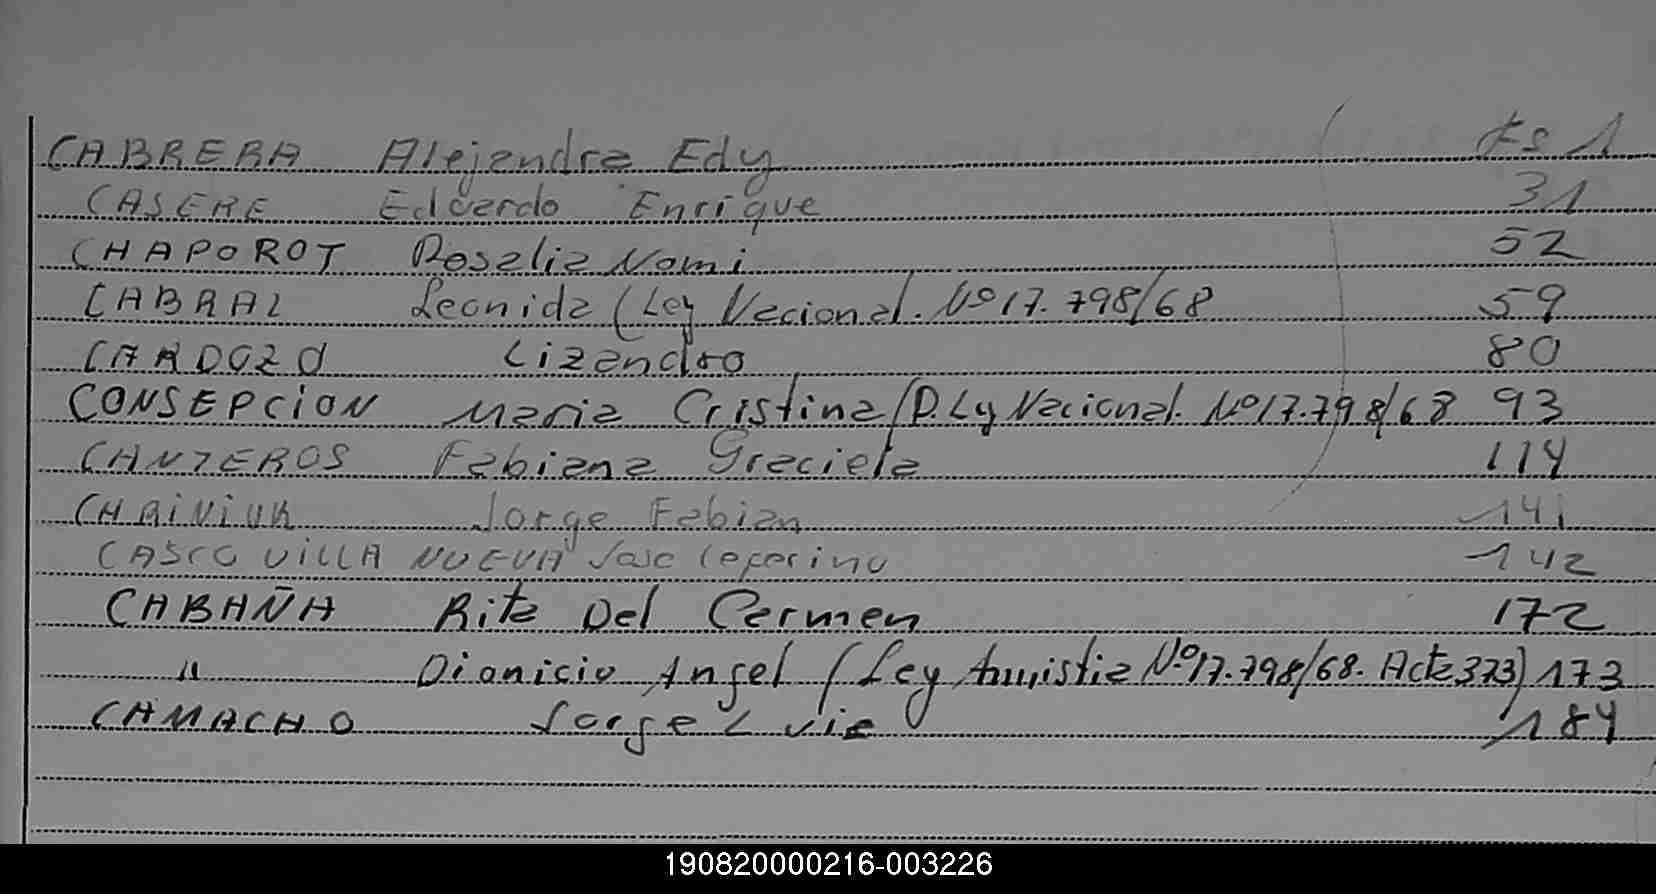 CABRERA Alejandra Edy Fs 1
CASERE Eduardo Enrique 31
CHAPOROT Rosalia Nomi 52
CABRAL Leonida (Ley Nacional. Nº 17.798/68 59
CARDOZO Lizandro 80
CONSEPCION Maria Cristina (D. Ly Nacional. Nº 17.798/68 93
CANTEROS Fabiana Graciela 114
Jorge Fabian 141
CASCO VILLA NUEVA Jose Ceferino 142
CABAÑA Rita Del Carmen 172
" Dionicio Angel (Ley Amistia Nº 17.798/68. Acta 373) 173
CAMACHO Jorge 184
190820000216-003226